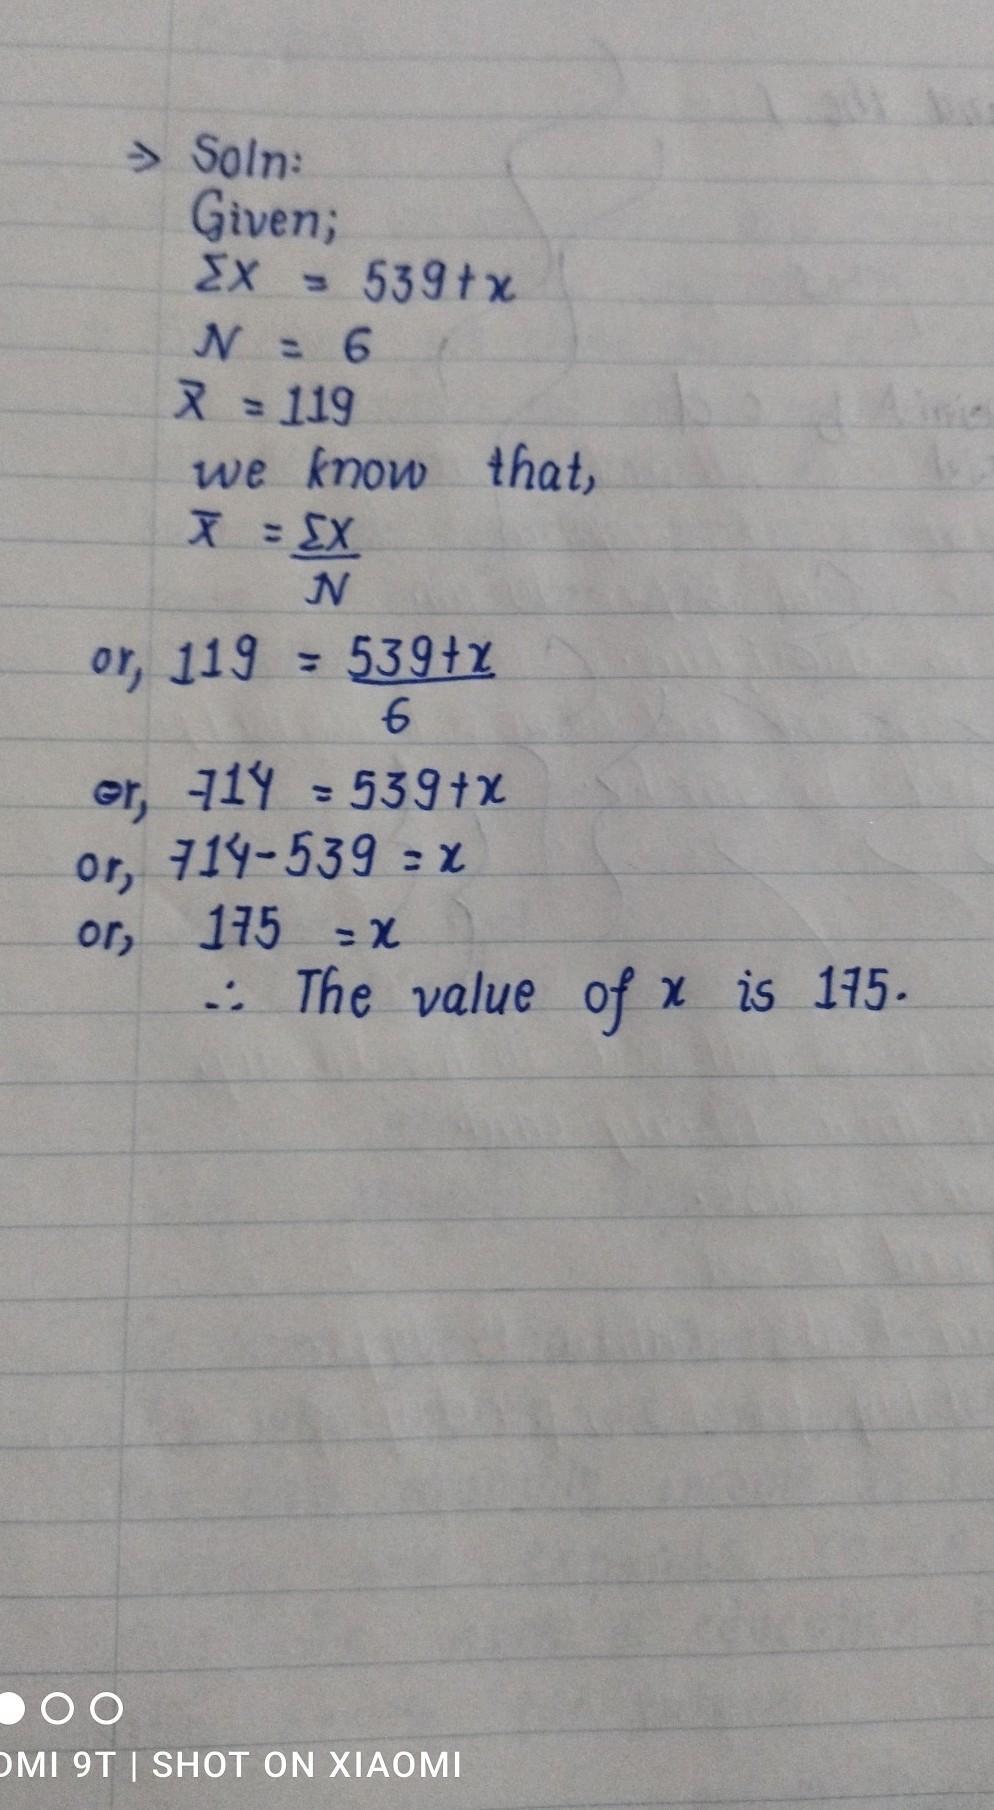 ⇒ Soln:
Given;
ΣX = 539+x
N = 6
X̄ = 119
we know that,
X̄ = ΣX
N
or, 119 = 539+x
6
or, 714 = 539+x
or, 714-539 = x
or, 175 = x
∴ The value of x is 175.
OMI 9T | SHOT ON XIAOMI